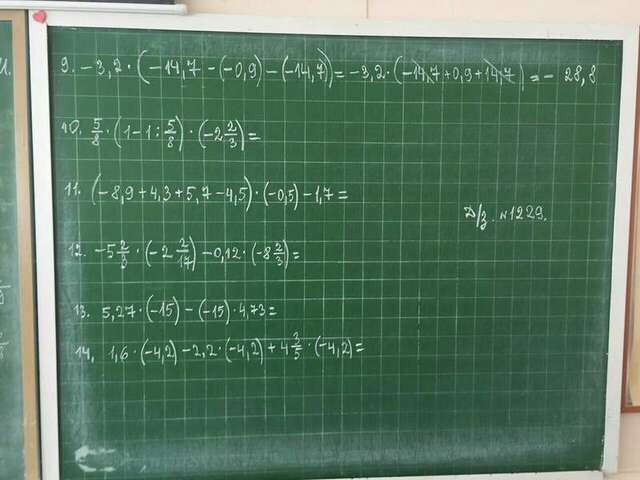 9. -3,2 · (-14,7 - (-0,9) - (-14,7)) = -3,2 · (-14,7 + 0,9 + 14,7) = - 28,8
10. 5/8 · (1 - 1 : 5/8) · (-2 2/3) =
11. (-8,9 + 4,3 + 5,7 - 4,5) · (-0,5) - 1,7 =
Д/з. №1229.
12. -5 2/3 · (-2 2/17) - 0,12 · (-8 2/3) =
13. 5,27 · (-15) - (-15) · 4,73 =
14. 1,6 · (-4,2) - 2,2 · (-4,2) + 4 3/5 · (-4,2) =